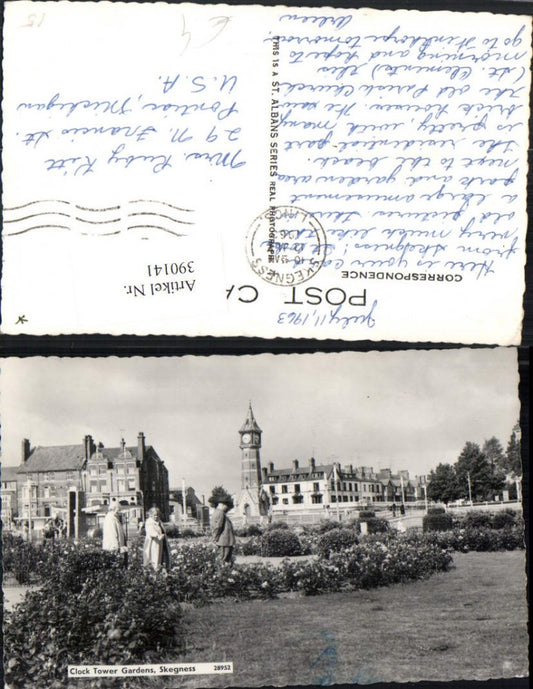 CORRESPONDENCE
POST CA
July 11, 1963
Here is your card
from Skegness! It looks
very much like the
old pictures. There is
a large amusement
park and garden area
next to the beach.
The residential part
is pretty, with many
brick houses. We saw
the old Parish Church
(St. Clements) this
morning and hope to
go to Stenhorpe tomorrow.
Arleen
THIS IS A ST. ALBANS SERIES REAL PHOTOGRAPH
SKEGNESS
LINCS
Mrs. Ruby Kitt
29 N. Francis St.
Pontiac, Michigan
U.S.A.
Artikel Nr.
390141
15
Clock Tower Gardens, Skegness 28952